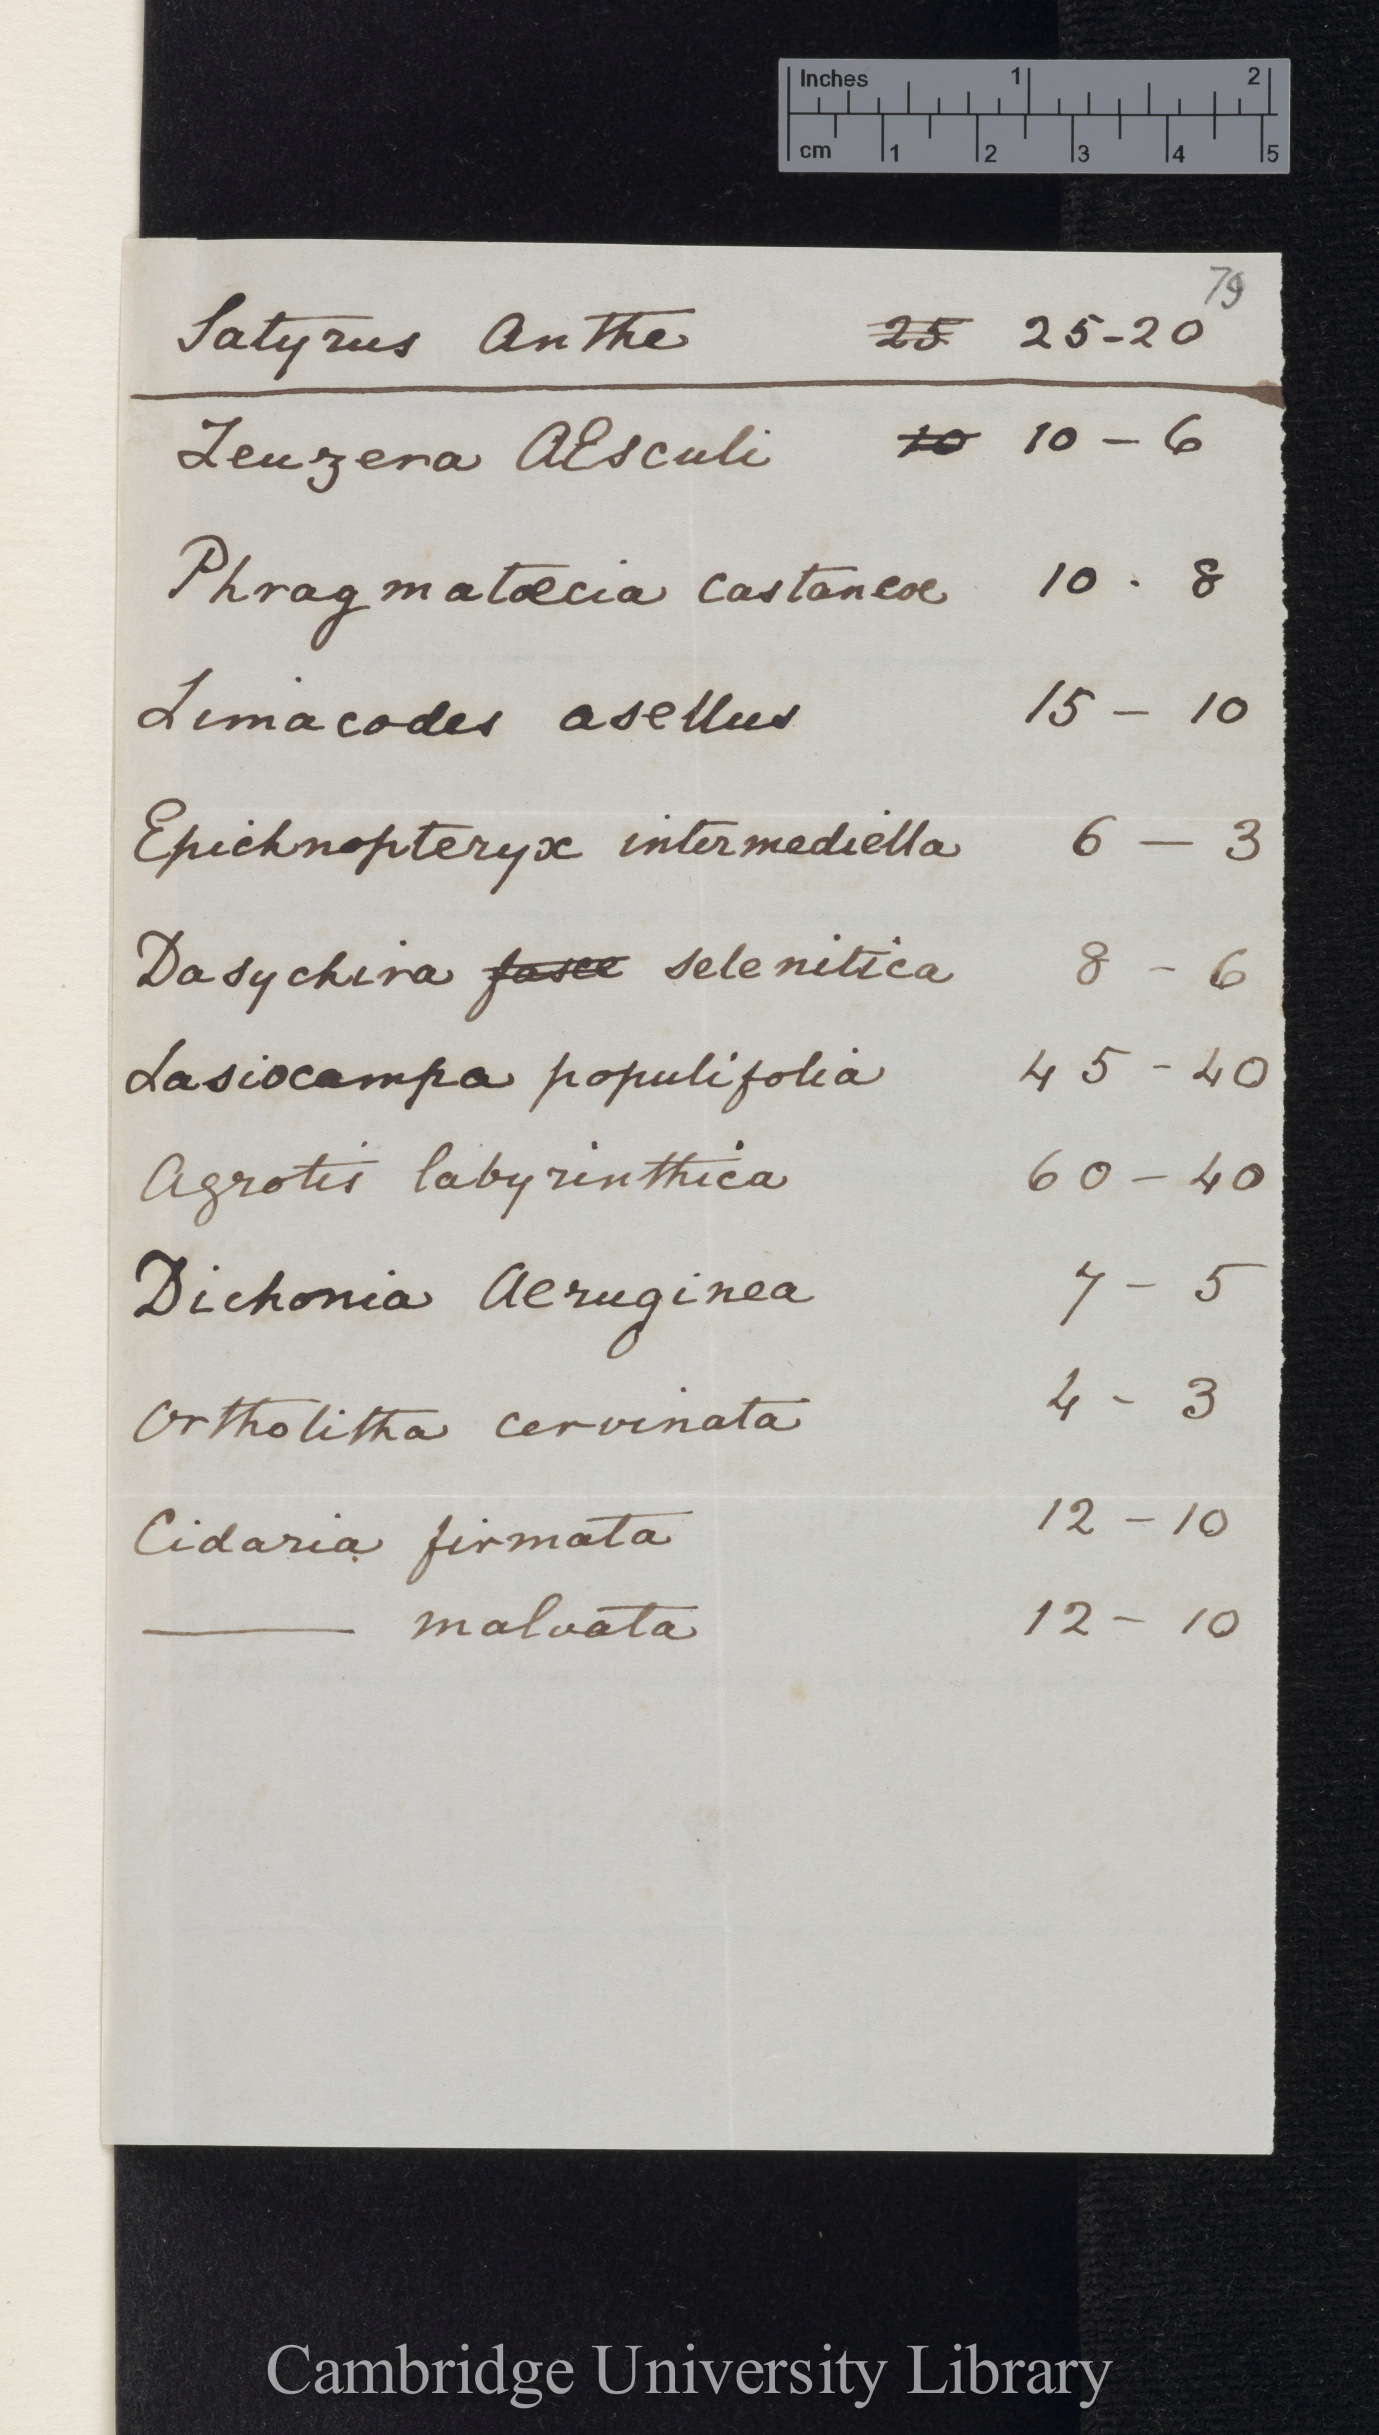 Inches 1 2
cm 1 2 3 4 5
79
Satyrus Anthe 25 25-20
Zeuzera AEsculi 10 10 - 6
Phragmatœcia castaneæ 10 . 8
Limacodes asellus 15 - 10
Epichnopteryx intermediella 6 - 3
Dasychira fasce selenitica 8 - 6
Lasiocampa populifolia 45 - 40
Agrotis labyrinthica 60 - 40
Dichonia Aeruginea 7 - 5
Ortholitha cervinata 4 - 3
Cidaria firmata 12 - 10
—— malvata 12 - 10
Cambridge University Library